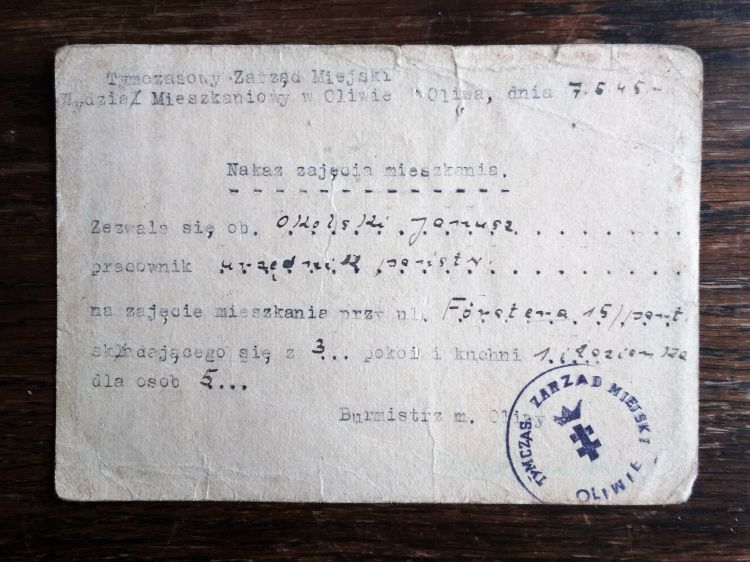 Tymczasowy Zarząd Miejski
Wydział Mieszkaniowy w Oliwie Oliwa, dnia 7.5.45-
Nakaz zajęcia mieszkania.
Zezwala się ob. Okolski Janusz
pracownik urzędnik państw.
na zajęcie mieszkania przy ul. Förstera 15/part.
składającego się z 3... pokoi i kuchni 1 i łazienka
dla osob 5...
Burmistrz m. Oliwy
TYMCZAS. ZARZĄD MIEJSKI
OLIWIE